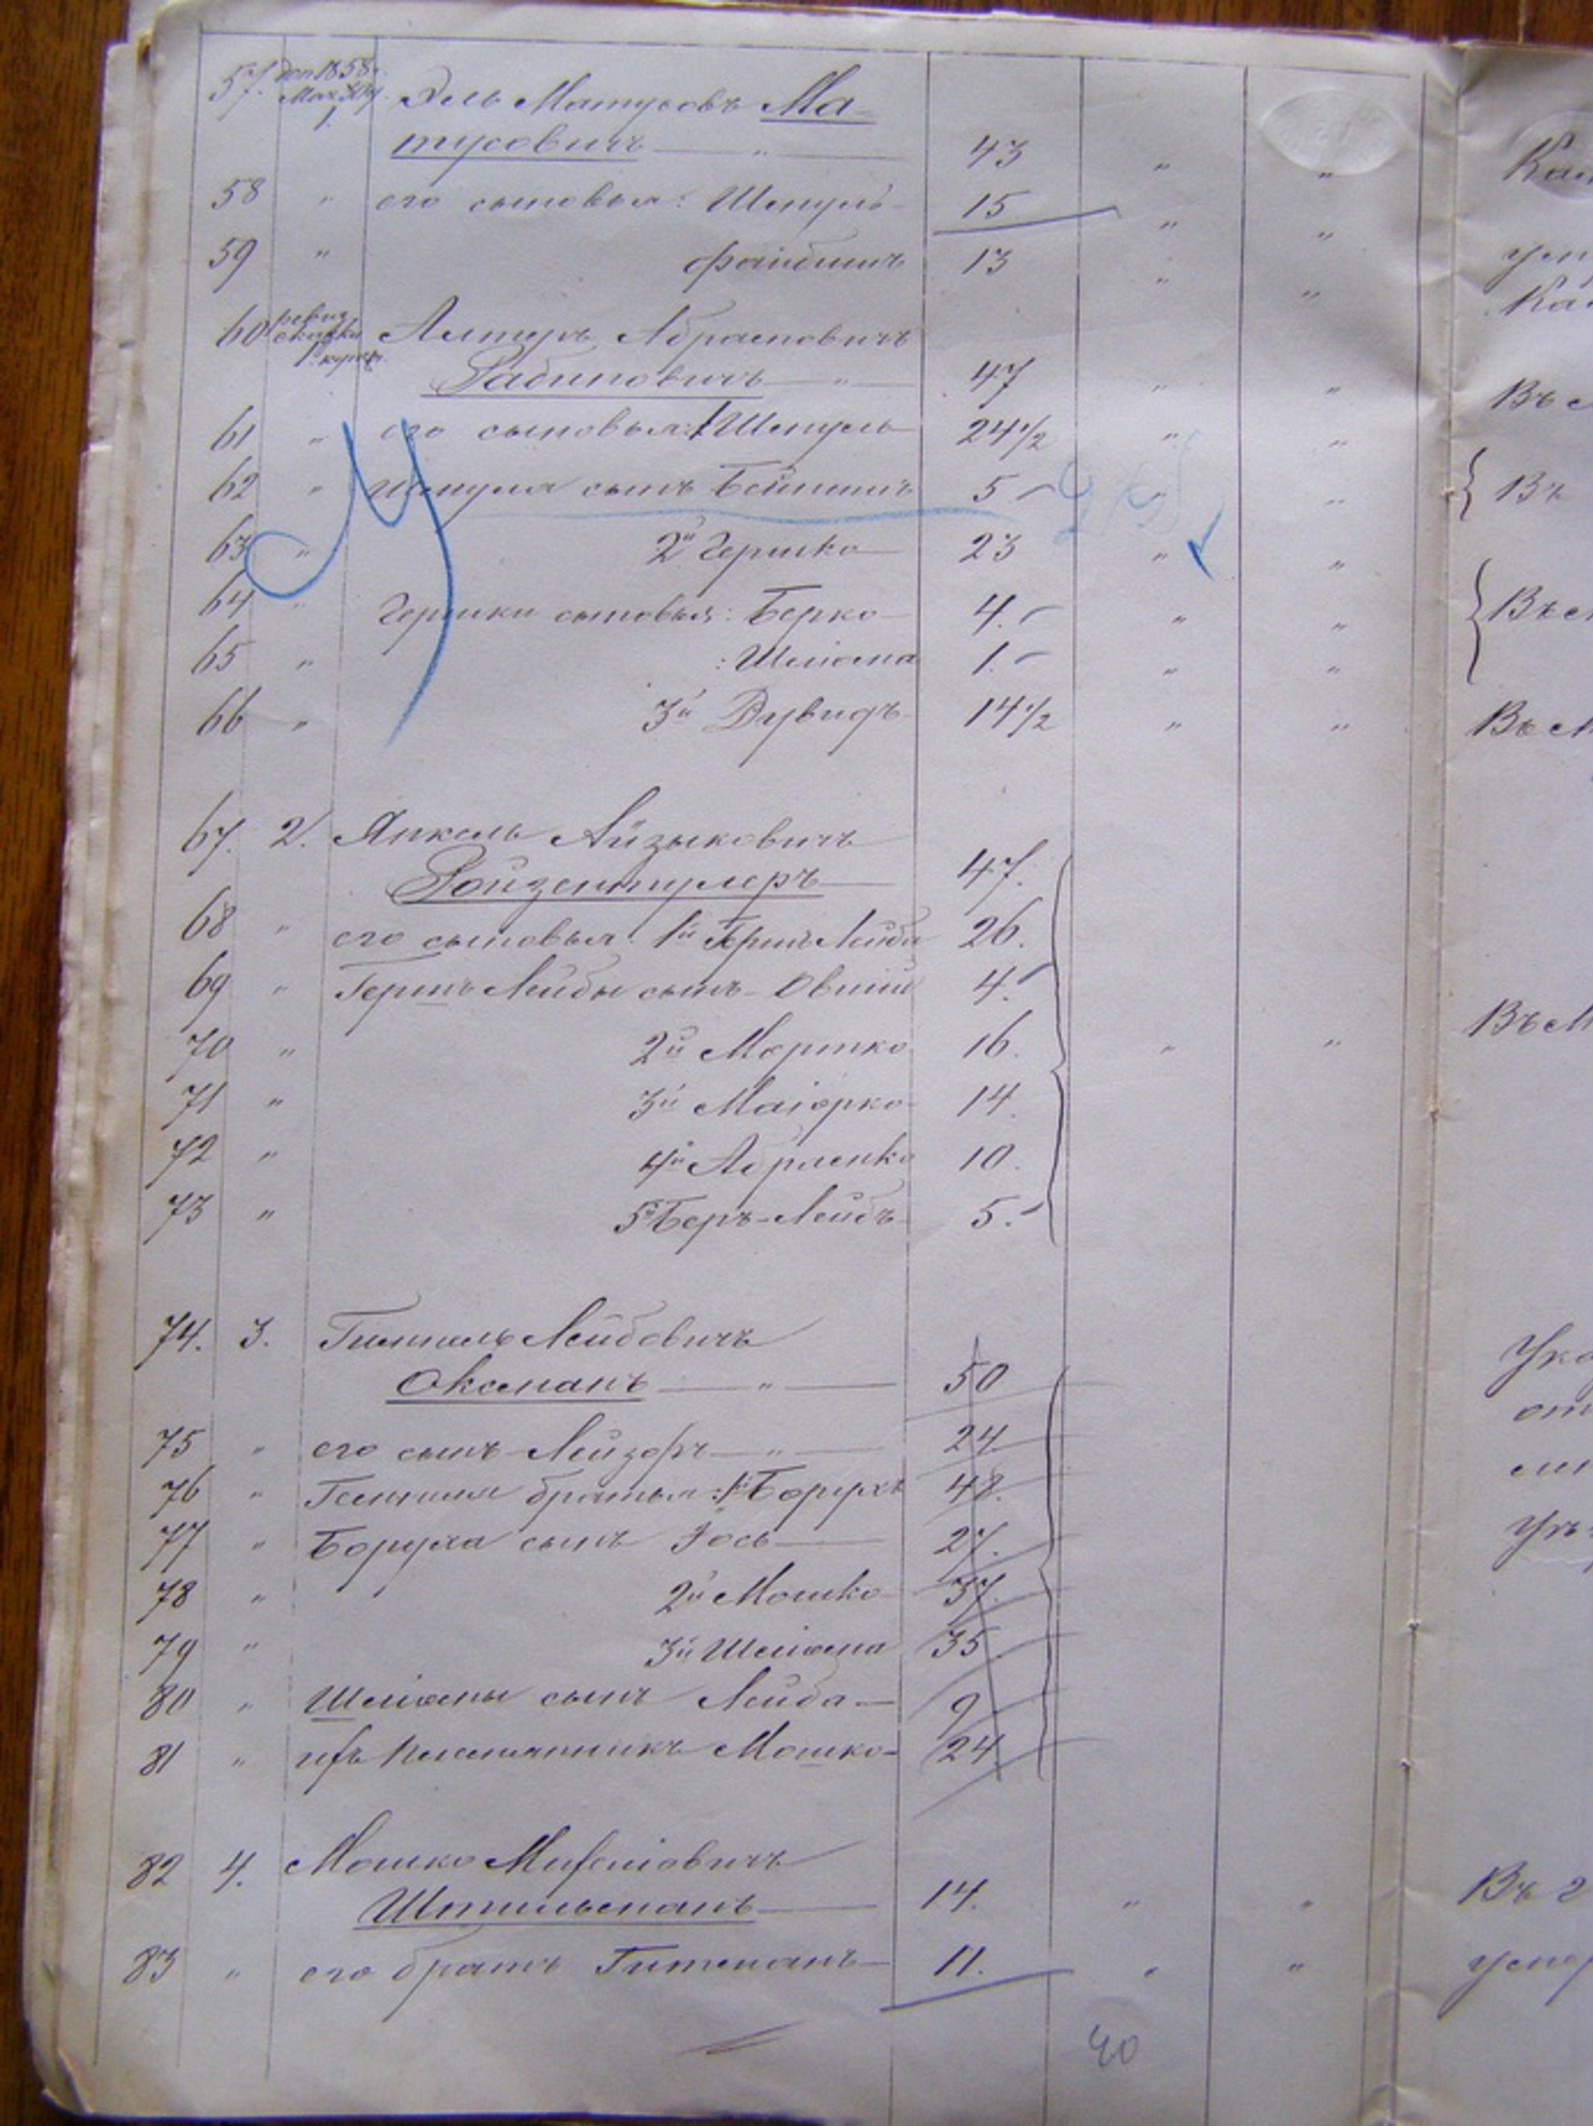 57. доп 1858г. Эль Матусовъ Ма-
1. тусовичъ — " — 43 " "
58 " его сыновья: Шмуль 15 " "
59 " Файбишъ 13 " "
60 ревиз. сказки Абрамовичъ
1 купеч. Рабиновичъ — " — 47 " "
61 " его сыновья: 1 Шмуль 24 1/2 " "
62 " Шмуля сынъ 5 " "
63 " 2й Гершко 23 " "
64 " Гершки сыновья: Берко 4. " "
65 " : Шлiома 1. " "
66 " 3й Дувидъ 14 1/2 " "
67. 2. Янкель Айзыковичъ
Ройзентулеръ 47.
68 " его сыновья: 1й Гершъ Лейба 26.
69 " Гершъ Лейбы сынъ Овшiй 4.
70 " 2й Мортко 16. " "
71 " 3й Маiорко 14.
72 " 4й Абрамко 10.
73 " 5й Беръ-Лейбъ 5.
74. 3. Лейбовичъ
Оксманъ — " — 50
75 " его сынъ Лейзоръ — " — 24
76 " братья: 1й Борухъ 48.
77 " Боруха сынъ Iось 27.
78 " 2й Мошко 37.
79 " 3й Шлiома 35
80 " Шлiомы сынъ Лейба — 9
81 " ихъ племянникъ Мошко 24
82 4. Мошко Михелiовичъ
Штильманъ 14. " "
83 " его братъ Гитманъ 11. " "
40
Въ
Въ